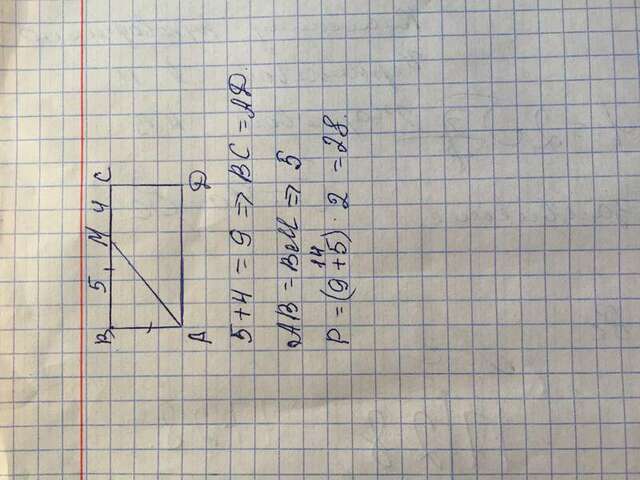 B 5 M 4 C
A D
5+4 = 9 => BC = AD.
AB = BM => 5
14
P = (9+5) · 2 = 28.